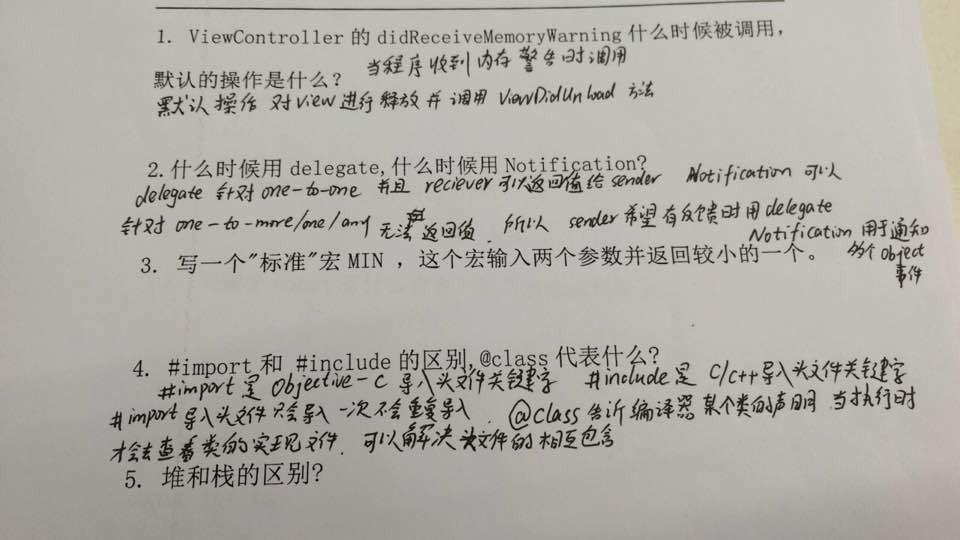 1. ViewController 的 didReceiveMemoryWarning 什么时候被调用，
默认的操作是什么？ 当程序收到内存警告时调用
默认操作 对view进行释放并调用 ViewDidUnload 方法
2.什么时候用 delegate,什么时候用 Notification?
delegate 针对 one-to-one 并且 reciever 可以返回值给 sender Notification 可以
针对 one-to-more/one/any 无法返回值. 所以 sender希望有反馈时用delegate
Notification 用于通知
3. 写一个"标准"宏 MIN ，这个宏输入两个参数并返回较小的一个。 多个object
事件
4. #import 和 #include 的区别,@class 代表什么?
#import 是 Objective-C 导入头文件关键字 #include是 C/C++导入头文件关键字
#import导入头文件只会导入一次不会重复导入. @class告诉编译器某个类的声明 当执行时
才会去查看类的实现文件. 可以解决头文件的相互包含
5. 堆和栈的区别?